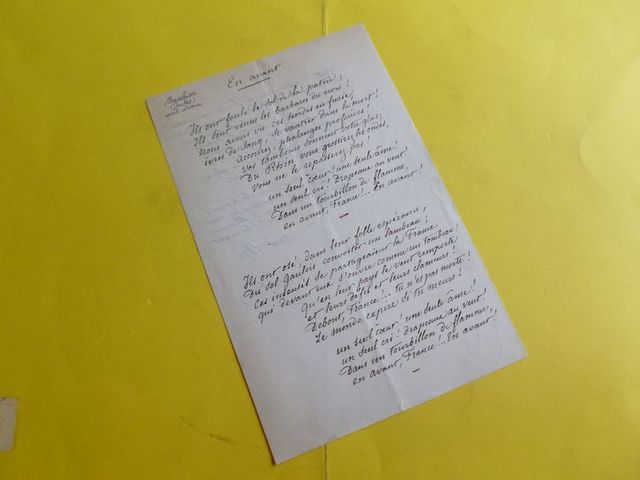 En avant
Ils ont foulé le sol de la patrie,
Ils sont venus les barbares du nord!
Nous avons vu ces hordes en furie,
ivres de sang, se vautrer dans la mort!
Accourez, phalanges
Vos tambours sonnent votre glas;
Du Rhin vous grossirez les ondes,
Vous ne le repasserez pas
un seul cœur! une seule âme!
un seul cri! Drapeaux au vent,
Dans un tourbillon de flamme,
en avant, France!.. En avant!
Ils ont osé, dans leur folle espérance,
Du sol Gaulois convoiter un lambeau;
Ces insensés se partageaient la France
qui devant eux s'ouvre comme un tombeau!
Qu'en leur pays le vent remporte
et leurs défis et leurs clameurs!
Debout, France!... tu n'es pas morte!
Le monde expire si tu meurs!
un seul cœur! une seule âme!
un seul cri! drapeaux au vent,
Dans un tourbillon de flamme,
en avant, France!.. En avant.